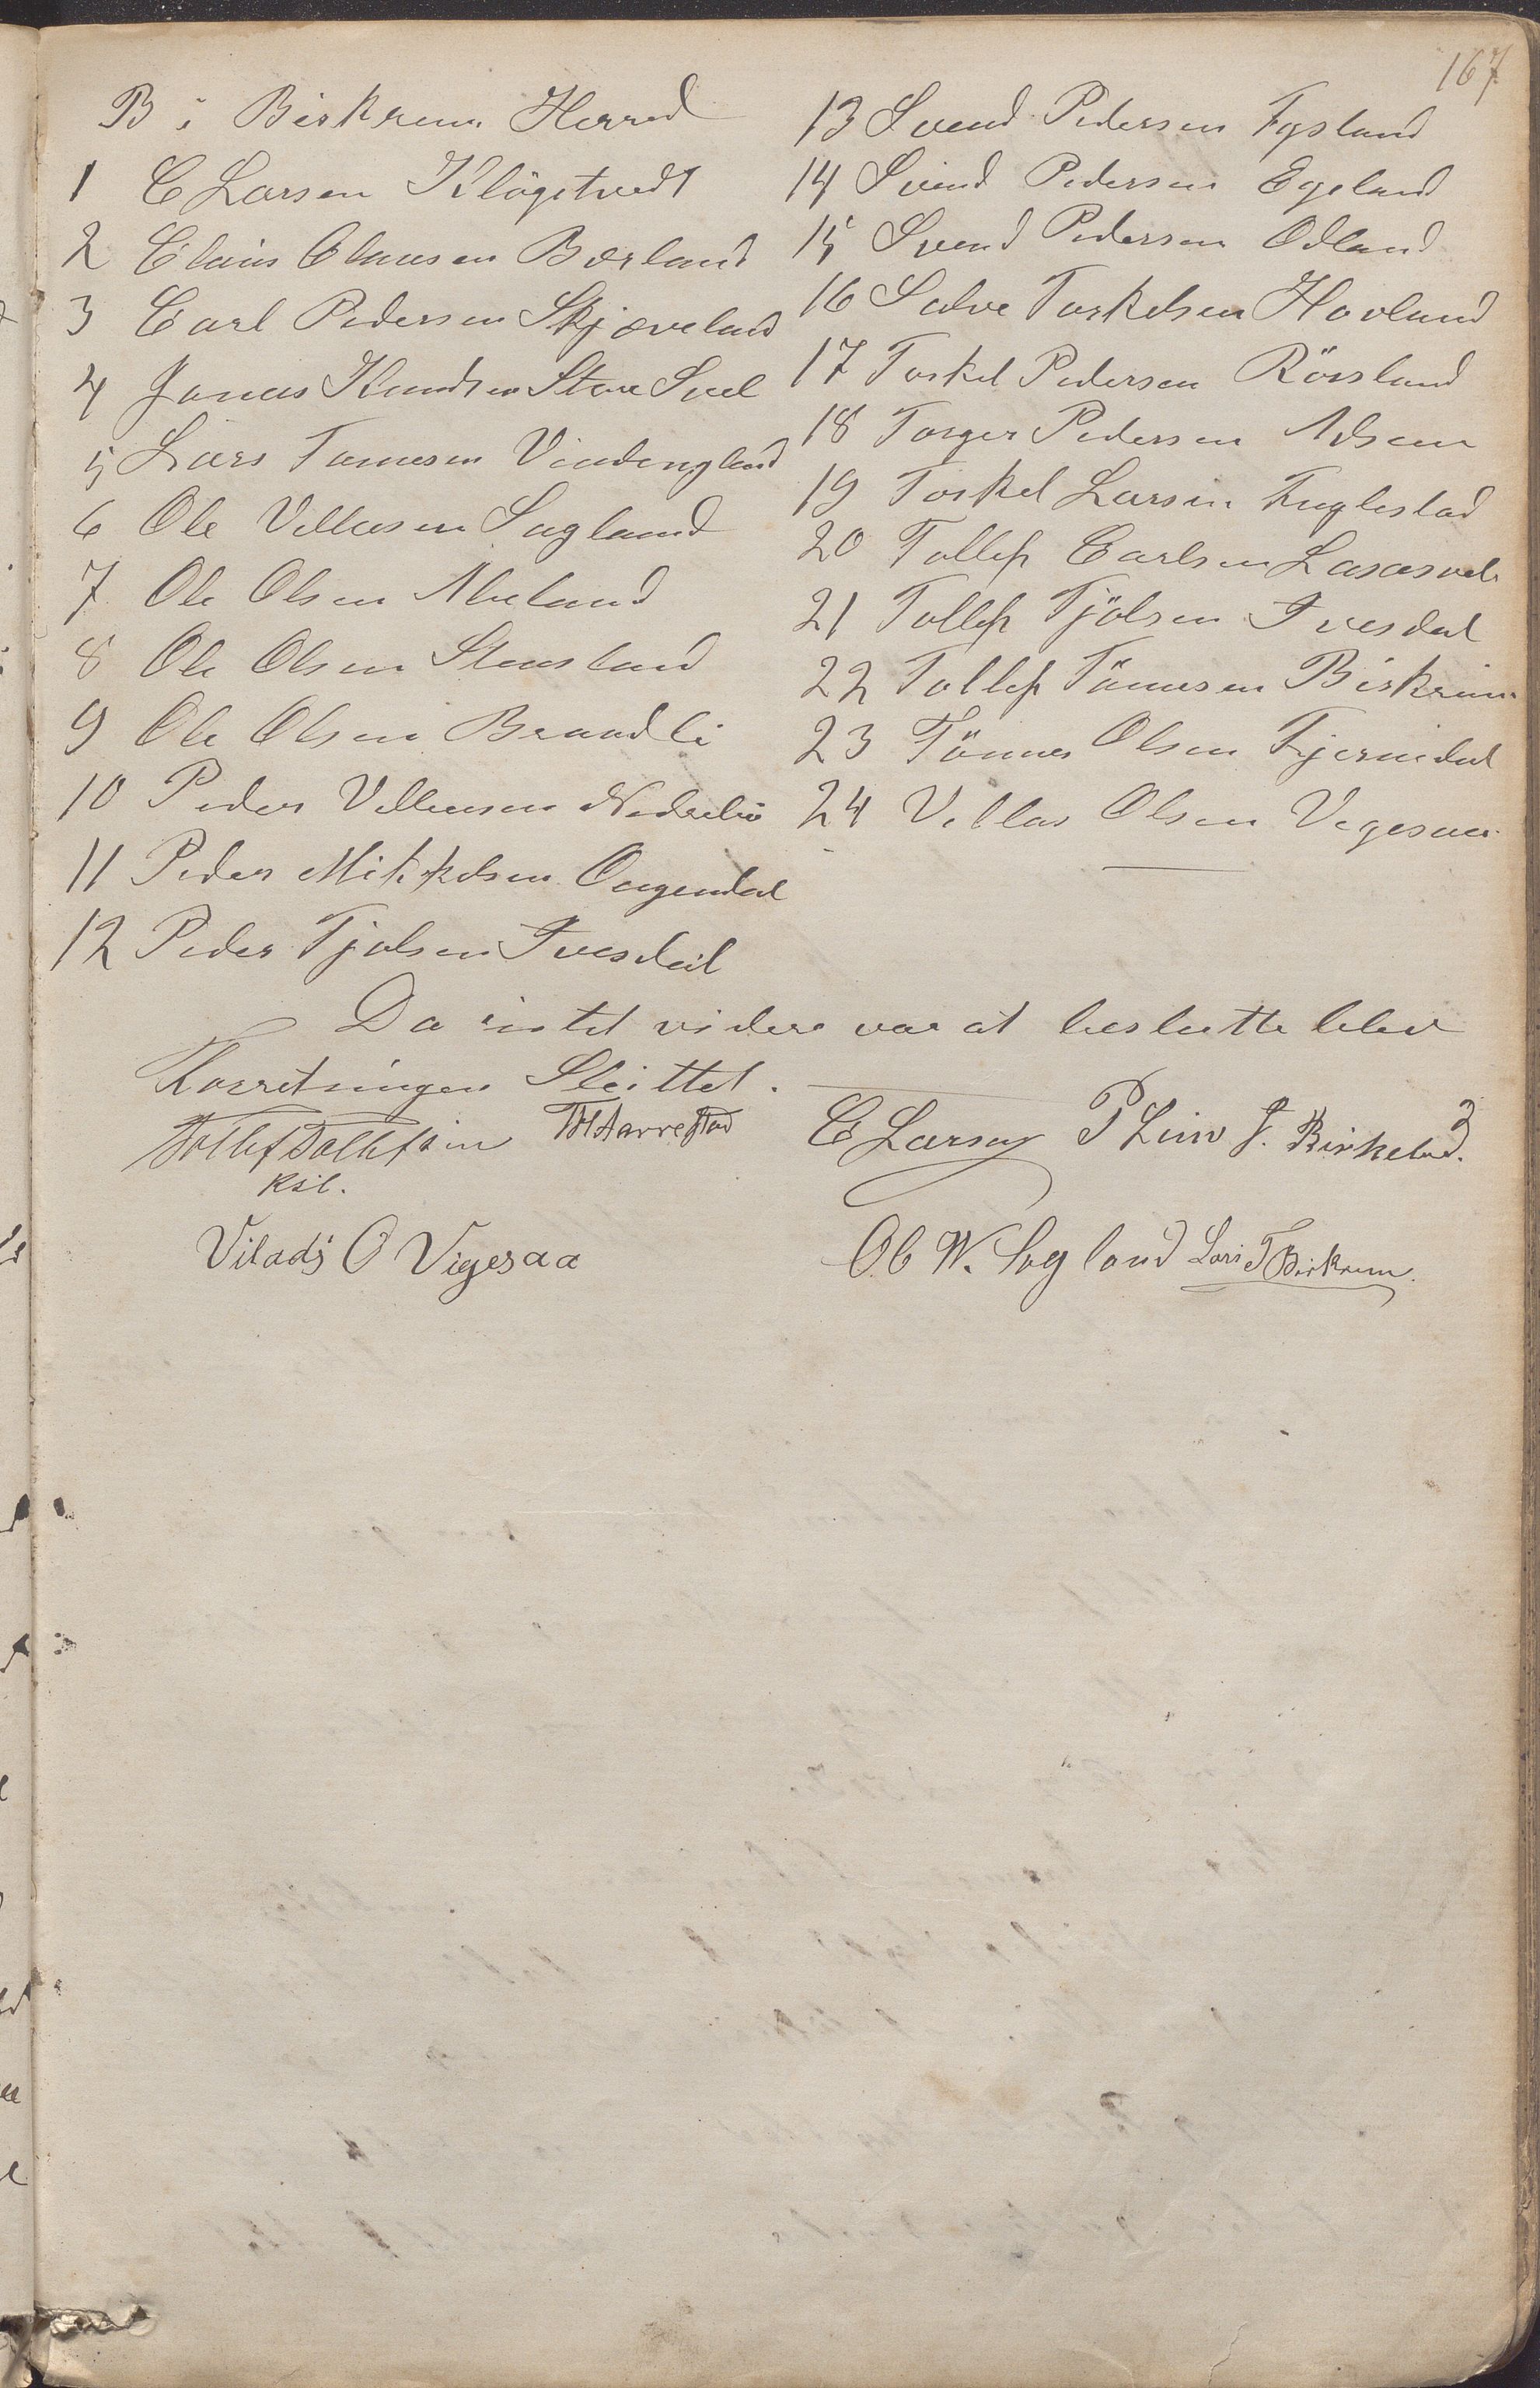 167
B i Birkrem Herred
1 C Larsen Klögetvedt
2 Claus Clausen Børland
3 Carl Pedersen Skjæveland
4 Jonas Knudsen Store Svel
5 Lars Tønnesen Vindingland
6 Ole Villassen Sagland
7 Ole Olsen Aveland
8 Ole Olsen Stensland
9 Ole Olsen Braadli
10 Peder Villassen Nedrebø
11 Peder Mikkelsen Ougendal
12 Peder Tjølsen Ivesdal
13 Svend Pedersen Fysland
14 Svend Pedersen Egeland
15 Svend Pedersen Odland
16 Salve Torkelsen Hovland
17 Torkel Pedersen Rörsland
18 Torger Pedersen
19 Torkel Larsen Fuglestad
20 Tollef Carlsen
21 Tollef Tjölsen Ivesdal
22 Tollef Tönnesen Birkrem
23 Tönnes Olsen Tjørnedal
24 Villas Olsen Vigesaa
Da intet videre var at beslutte blev
Forretningen Sluttet.
Tollef Tollefsen THAarrestad C Larsen P Lim J. Birkeland.
Vilads O Vigesaa Ole W. Sagland Lars T Birkrem